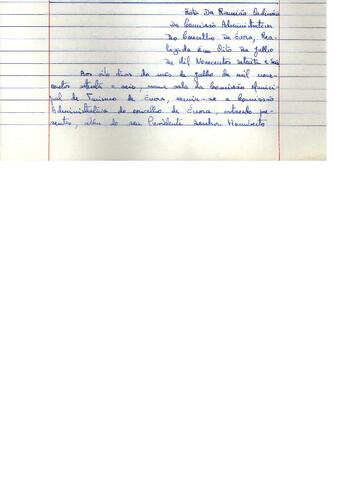 Acta Da Reunião Ordinária
da Comissão Administrativa
Do Concelho de Évora, Rea-
lizada Em Oito De Julho
De Mil Novecentos setenta e Seis
Aos oito dias do mês de julho de mil nove-
centos setenta e seis, numa sala da Comissão Munici-
pal de Turismo de Évora, reuniu-se a Comissão
Administrativa do concelho de Évora, estando pre-
sentes, além do seu Presidente senhor Humberto